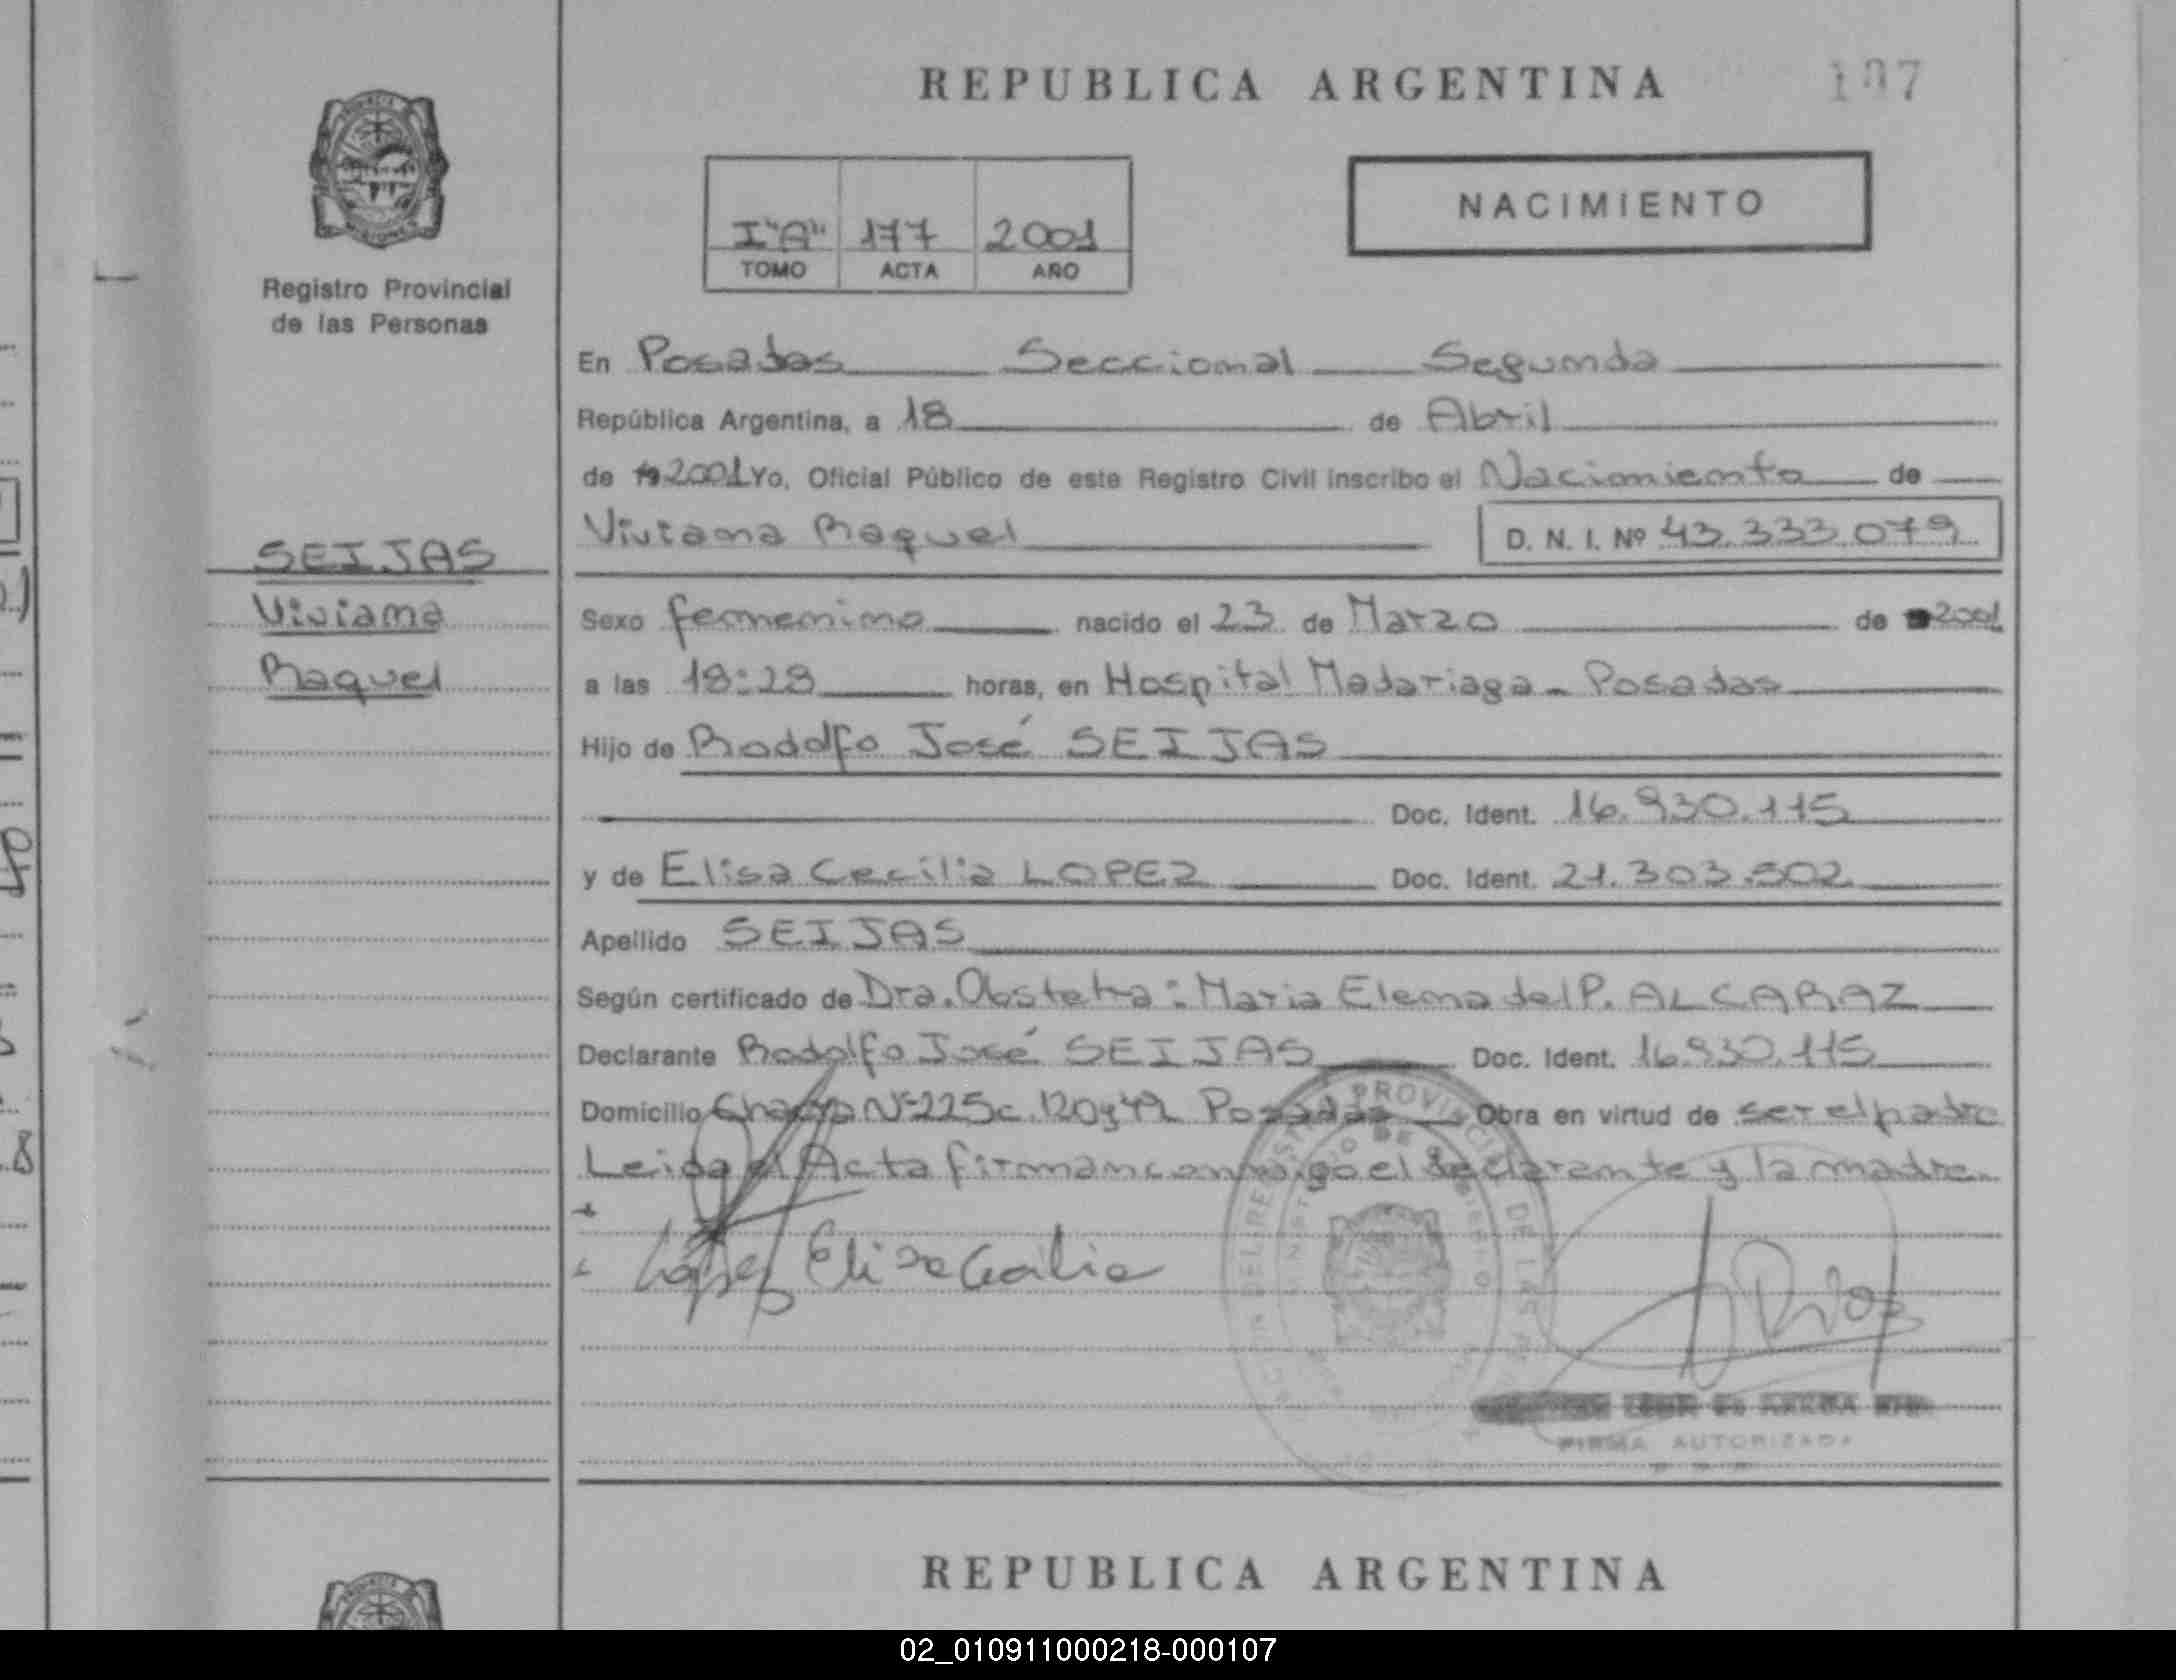 REPUBLICA ARGENTINA
107
NACIMIENTO
I "A" 177 2001
TOMO ACTA AÑO
Registro Provincial
de las Personas
En Posadas Seccional Segunda
República Argentina, a 18 de Abril
de 19 2001 Yo, Oficial Público de este Registro Civil inscribo el Nacimiento de
Viviana Raquel D. N. I. Nº 43.333.079
SEIJAS
Viviana
Raquel
Sexo femenino nacido el 23 de Marzo de 2001
a las 18:28 horas, en Hospital Madariaga - Posadas
Hijo de Rodolfo José SEIJAS
Doc. Ident. 16.930.115
y de Elisa Cecilia LOPEZ Doc. Ident. 21.303.502
Apellido SEIJAS
Según certificado de Dra. Obstetra: Maria Elena del P. ALCARAZ
Declarante Rodolfo José SEIJAS Doc. Ident. 16.930.115
Domicilio Chacra Nº 225 c. 120 y 49 Posadas Obra en virtud de ser el padre
Leida el Acta firman conmigo el declarante y la madre.
López Elisa Cecilia
FIRMA AUTORIZADA
REPUBLICA ARGENTINA
02_010911000218-000107